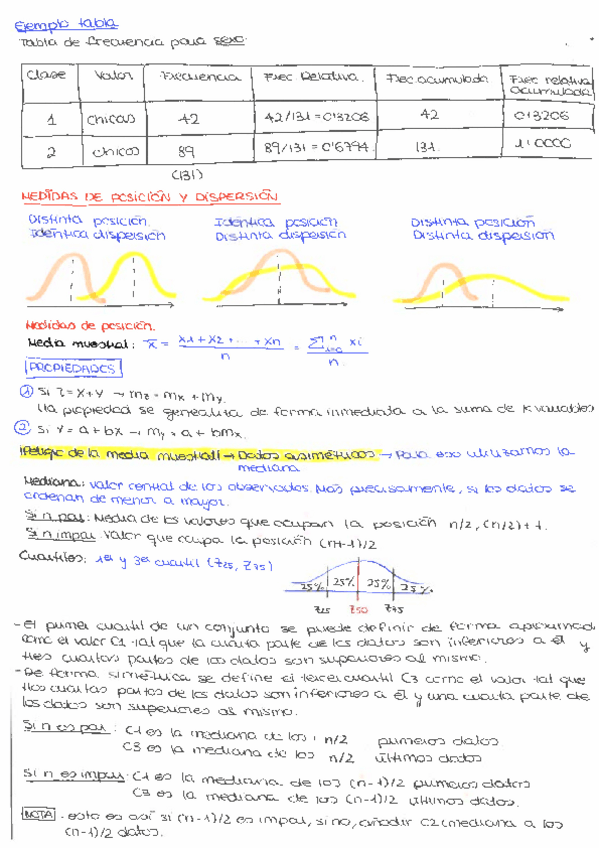 Ejemplo tabla
Tabla de frecuencia para sexo.
Clase Valor Frecuencia Frec Relativa. Frec. acumulada Frec relativa acumulada
1 chicas 42 42/131 = 0'3206 42 0'3206
2 chicos 89 89/131 = 0'6794 131 1'0000
(131)
MEDIDAS DE POSICIÓN Y DISPERSIÓN
Distinta posición Identica posición Distinta posición
Identica dispersión Distinta dispersión Distinta dispersion
Medidas de posición.
Media muestral: x̄ = x1 + x2 + ... + xn / n = Σ xi / n
PROPIEDADES
① Si Z = X + Y → mz = mx + my.
La propiedad se generaliza de forma inmediata a la suma de k variables
② Si Y = a + bX → my = a + bmx.
¡Peligro de la media muestral! → Datos asimétricos → Para eso utilizamos la
mediana
Mediana: valor central de los observados. Más precisamente, si los datos se
ordenan de menor a mayor.
Si n par: Media de los valores que ocupan la posición n/2, (n/2)+1.
Si n impar: valor que ocupa la posición (n+1)/2
Cuartiles: 1er y 3er cuartil (Z25, Z75)
25% 25% 25% 25%
Z25 Z50 Z75
- El primer cuartil de un conjunto se puede definir de forma aproximada
como el valor C1 tal que la cuarta parte de los datos son inferiores a él y
tres cuartas partes de los datos son superiores al mismo.
- De forma simétrica se define el tercer cuartil C3 como el valor tal que
tres cuartas partes de los datos son inferiores a él y una cuarta parte de
los datos son superiores al mismo.
Si n es par: C1 es la mediana de los n/2 primeros datos
C3 es la mediana de los n/2 últimos datos
Si n es impar: C1 es la mediana de los (n-1)/2 primeros datos
C3 es la mediana de los (n-1)/2 últimos datos.
NOTA: esto es así si (n-1)/2 es impar, si no, añadir C2 (mediana a los
(n-1)/2 datos.